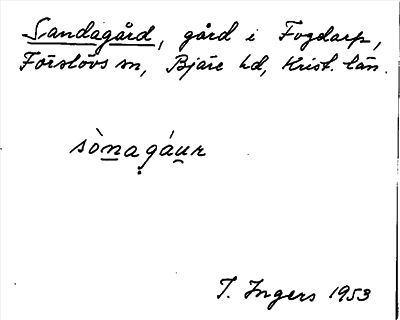 Sandagård, gård i Fogdarp,
Förslövs sn, Bjäre hd, Krist. län.
sònagáur
T. Ingers 1953